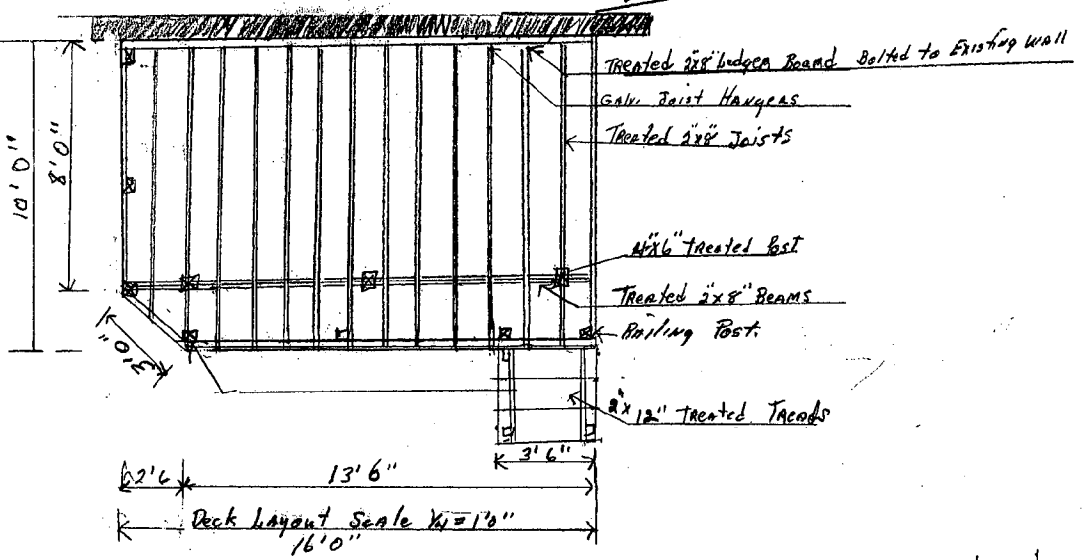 Treated 2"x8" Ledger Board Bolted to Existing Wall
Galv. Joist Hangers
Treated 2"x8" Joists
10'0"
8'0"
4"x6" Treated Post
Treated 2"x8" Beams
Railing Post.
3'0"
2"x12" Treated Treads
3'6"
2'6
13'6"
Deck Layout Scale 1/4=1'0"
16'0"